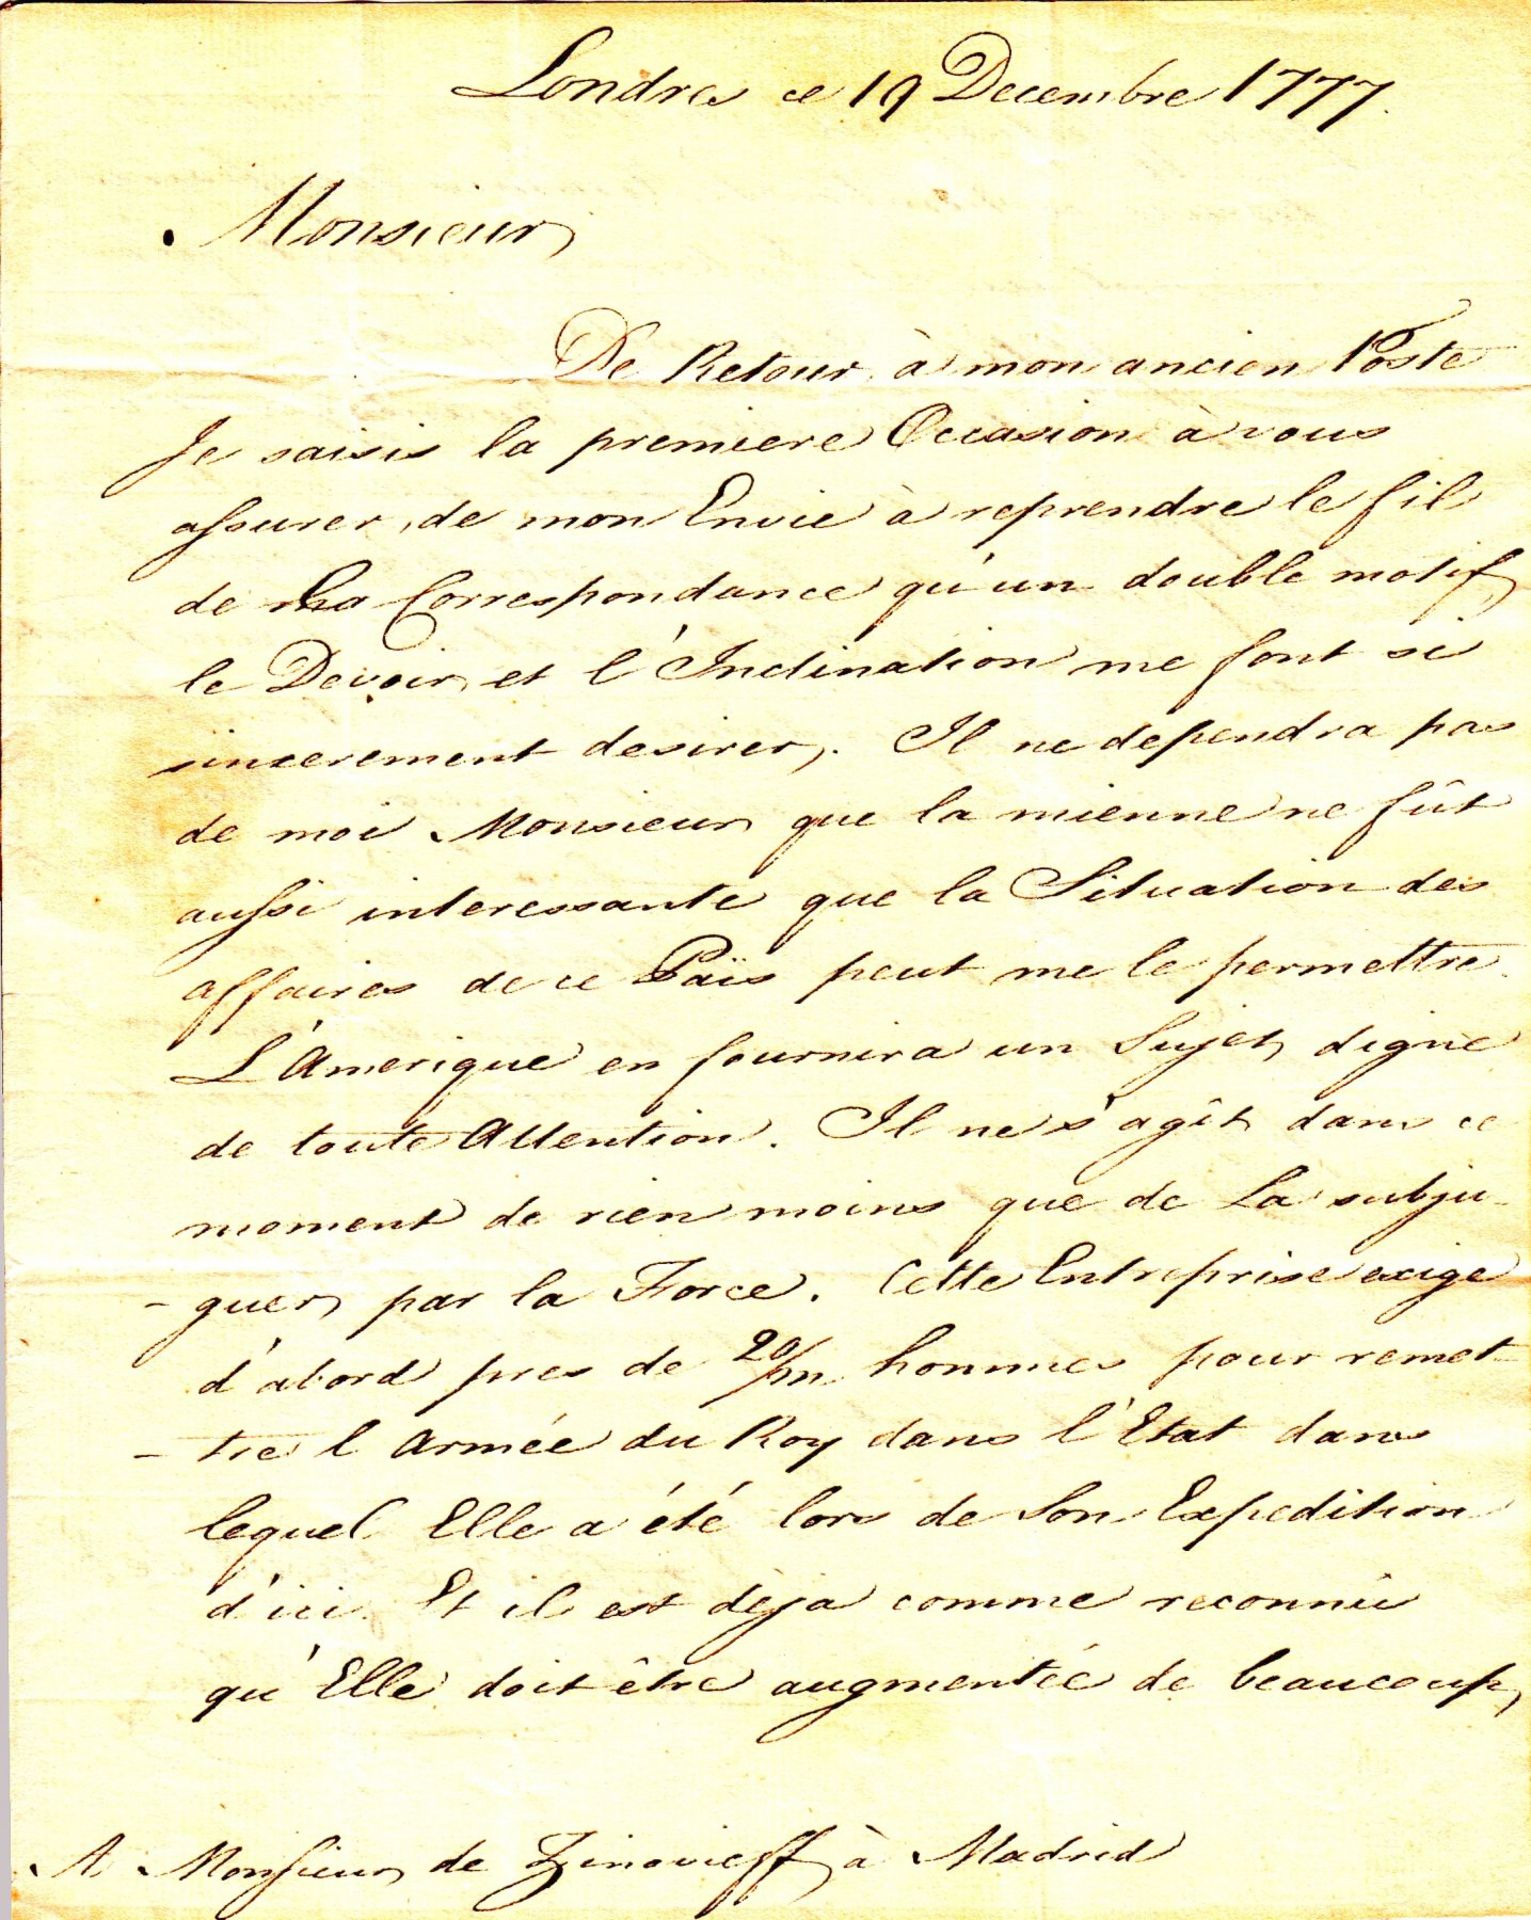 Londres ce 19 Decembre 1777.
Monsieur
De Retour à mon ancien Poste
Je saisis la premiere Occasion à vous
assurer, de mon Envie à reprendre le fil
de La Correspondance qu'un double motif
le Devoir, et l'Inclination me font si
sincerement desirer. Il ne dependra pas
de moi Monsieur que la mienne ne fût
aussi interessante que la Situation des
affaires de ce Païs peut me le permettre.
L'Amerique en fournira un Sujet digne
de toute Attention. Il ne s'agît dans ce
moment de rien moins que de La subju-
-guer par la Force. Cette Entreprise exige
d'abord pres de 20/m hommes pour remet-
-tre l'Armée du Roy dans l'Etat dans
lequel Elle a été lors de Son Expedition
d'ici. Et il est dèja comme reconnû
qu'Elle doit être augmentée de beaucoup,
A Monsieur de Zinovieff à Madrid